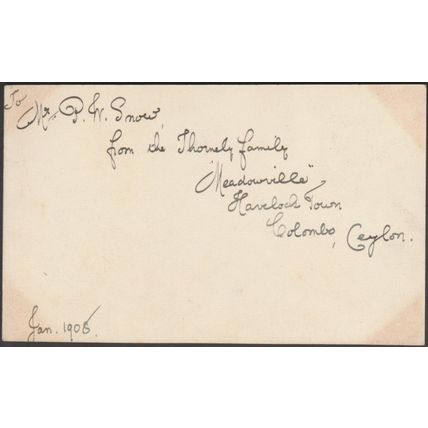 To
Mr. P. W. Snow,
from the Thornely family
"Meadowville"
Havelock Town
Colombo, Ceylon.
Jan. 1906.